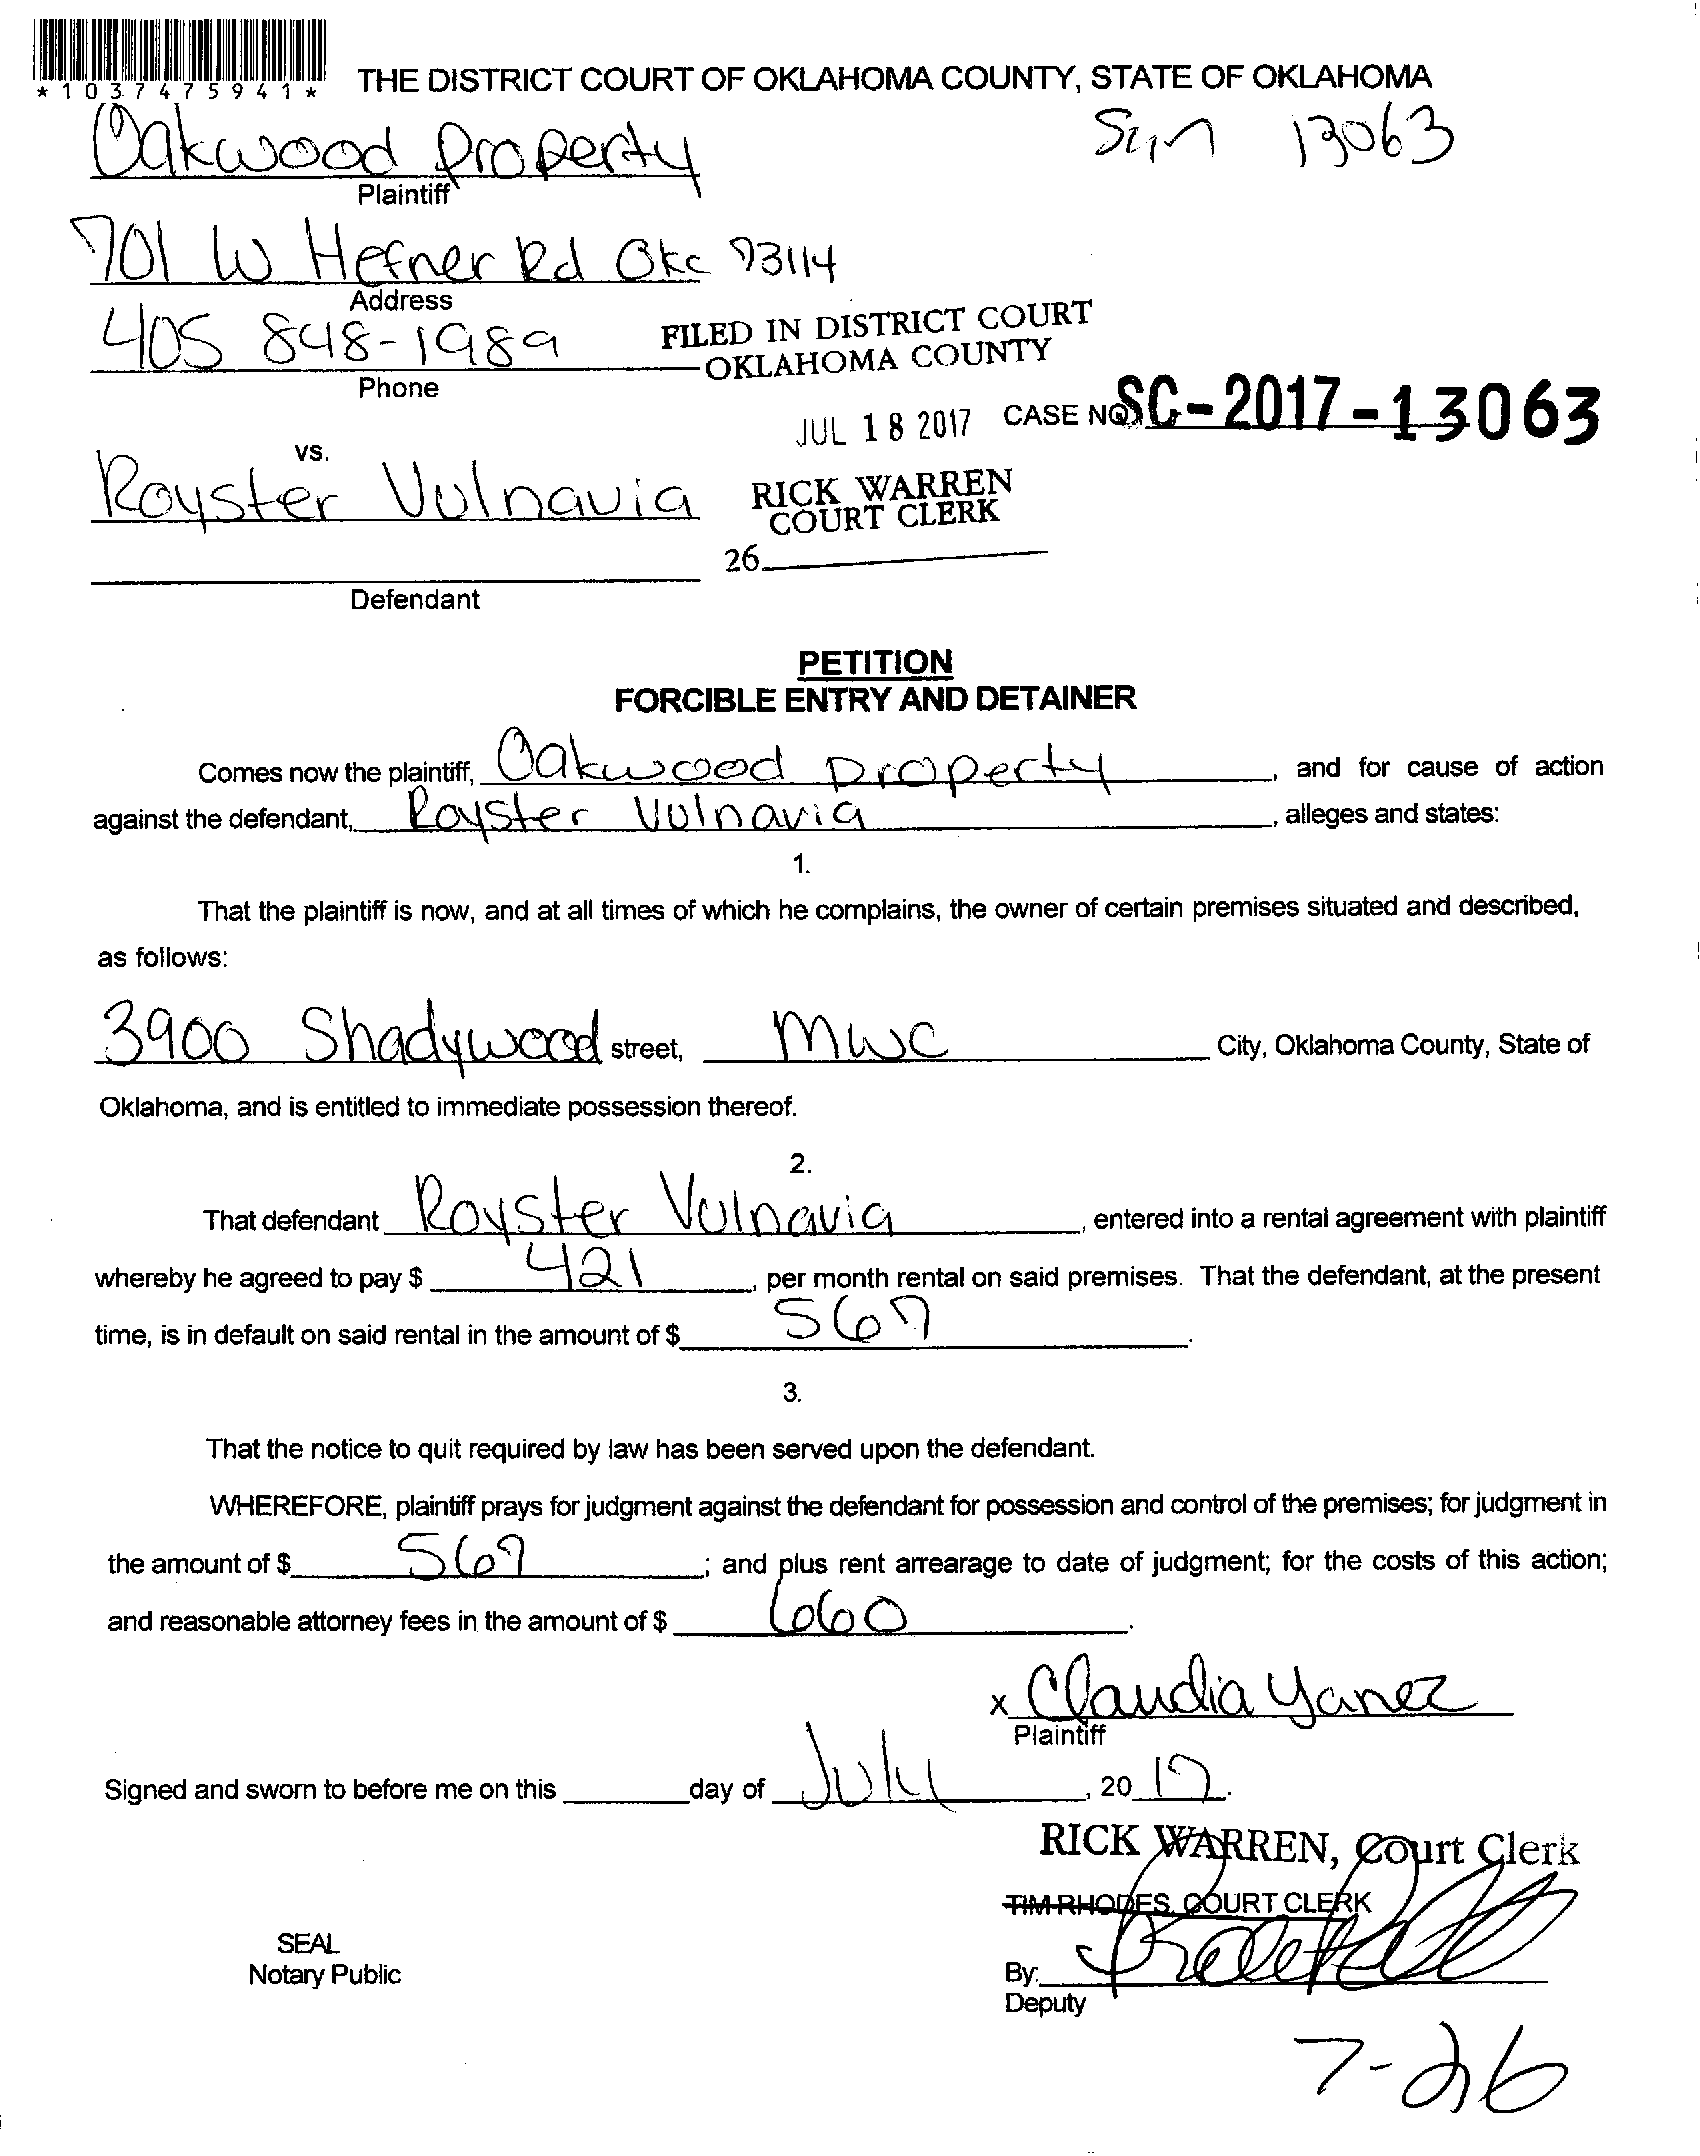 *1037475941*
THE DISTRICT COURT OF OKLAHOMA COUNTY, STATE OF OKLAHOMA
Oakwood Property
13063
Plaintiff
701 W Hefner Rd Okc 73114
Address
405 848-1989
FILED IN DISTRICT COURT
OKLAHOMA COUNTY
Phone
JUL 18 2017
CASE NO. SC-2017-13063
vs.
Royster Vulnavia
RICK WARREN
COURT CLERK
26
Defendant
PETITION
FORCIBLE ENTRY AND DETAINER
Comes now the plaintiff, Oakwood Property, and for cause of action
against the defendant, Royster Vulnavia, alleges and states:
1.
That the plaintiff is now, and at all times of which he complains, the owner of certain premises situated and described,
as follows:
3900 Shadywood street, MWC City, Oklahoma County, State of
Oklahoma, and is entitled to immediate possession thereof.
2.
That defendant Royster Vulnavia, entered into a rental agreement with plaintiff
whereby he agreed to pay $ 421, per month rental on said premises. That the defendant, at the present
time, is in default on said rental in the amount of $ 567.
3.
That the notice to quit required by law has been served upon the defendant.
WHEREFORE, plaintiff prays for judgment against the defendant for possession and control of the premises; for judgment in
the amount of $ 567; and plus rent arrearage to date of judgment; for the costs of this action;
and reasonable attorney fees in the amount of $ 660.
x Claudia Yanez
Plaintiff
Signed and sworn to before me on this ____ day of July, 2017.
RICK WARREN, Court Clerk
TIM RHODES, COURT CLERK
SEAL
Notary Public
By:
Deputy
7-26